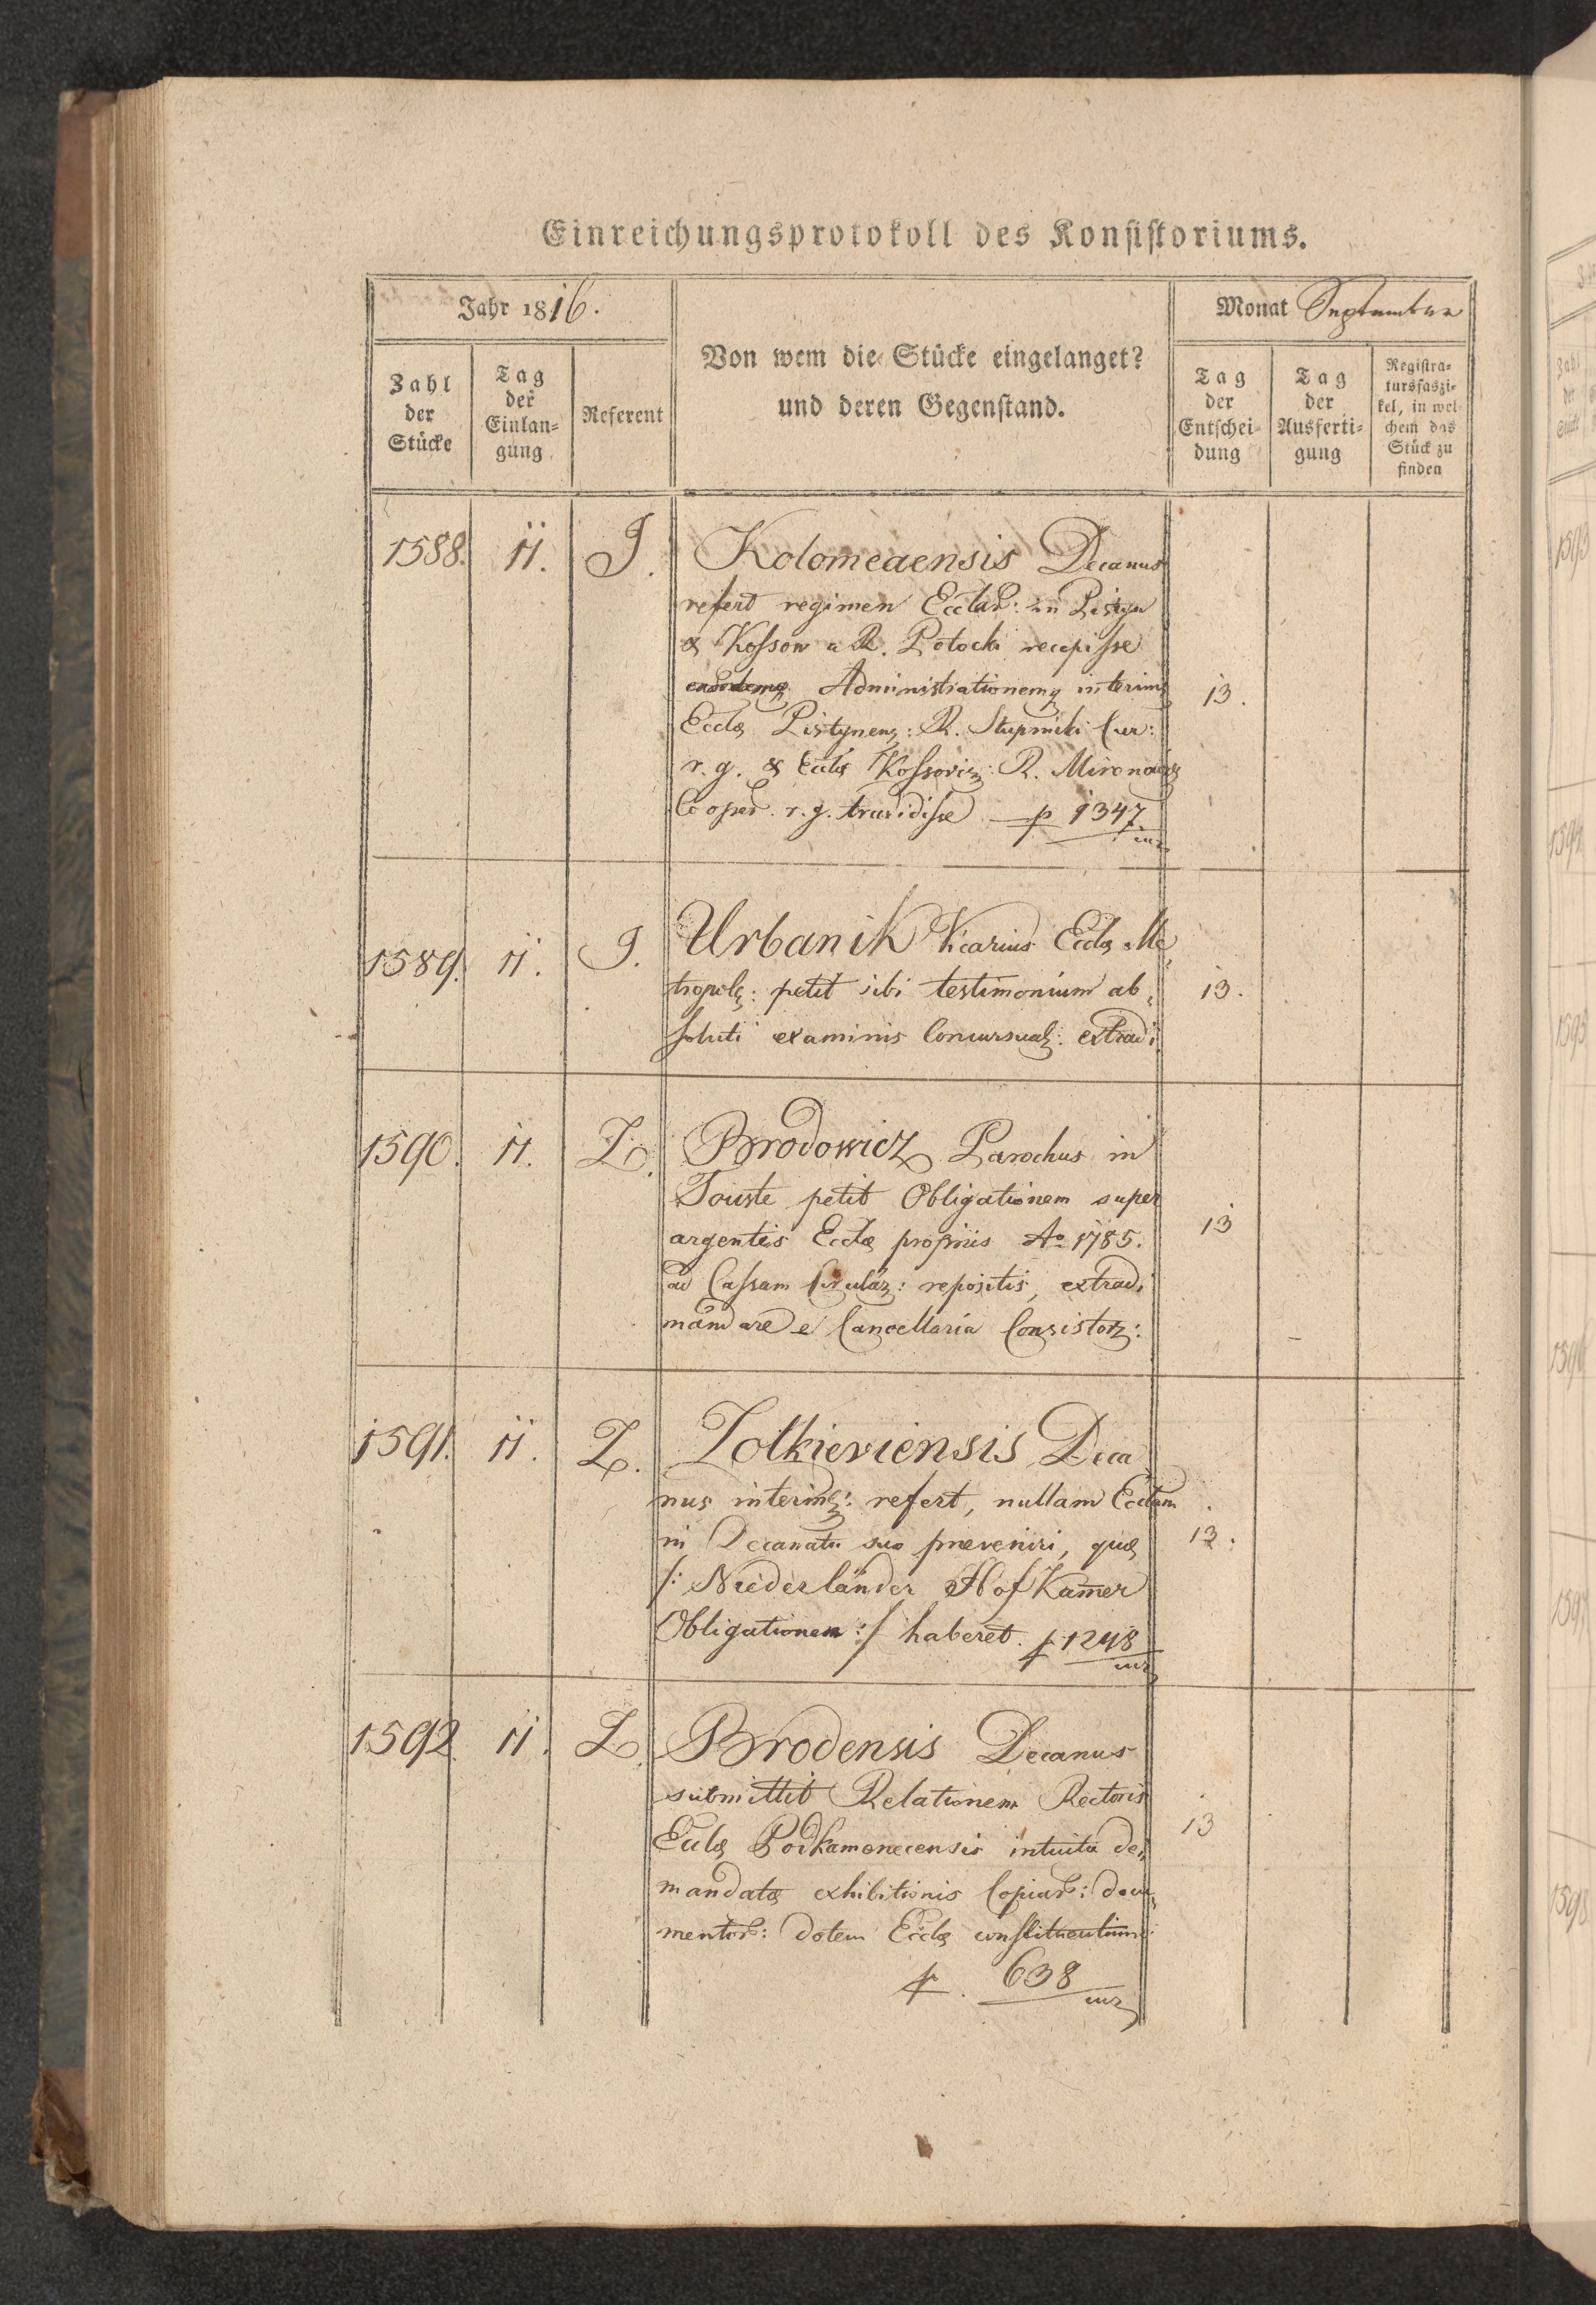 Einreichungsprotokoll des Konsistoriums.
Jahr 1816.
Von wem die Stücke eingelanget?
und deren Gegenstand.
Monat September
Zahl
der
Stücke
Tag
der
Einlan=
gung
Referent
Tag
der
Entschei=
dung
Tag
der
Ausferti=
gung
Registra=
tursfaszi=
kel, in wel=
chem das
Stück zu
finden
1588. 11. J. Kolomeaensis Decanus
refert regimen Ecclar: in Pistyn
& Kossow a R. Potocki recepisse
Administrationemq interim
Eccla Pistynens: R. Stupnicki Cur:
r. g. & Eccla Kossovien: R. Mironowicz
Cooper. r. g. tradidisse p 1347
13.
1589. 11. J. Urbanik Vicarius Eccla Me
tropol: petit sibi testimonium ab,
soluti examinis Concursual: extradi
13.
1590. 11. Z. Brodowicz Parochus in
Touste petit Obligationem super
argenteis Eccla propriis Ao 1785.
ad Cassam Circular: repositis, extradi
mandare e Cancellaria Consistor:
13
1591. 11. Z. Zolkieviensis Deca
nus interim: refert, nullam Ecclam
in Decanatu suo praeveniri, quae
/: Niederländer Hof Kam̄er
Obligationen :/ haberet. p 1248
13.
1592. 11. Z. Brodensis Decanus
submittit Relationem Rectoris
Eccla Podkamenecensis intuitu de,
mandata exhibitionis Copiar: docu,
mentor: dotem Eccla constituentium
p. 638
13